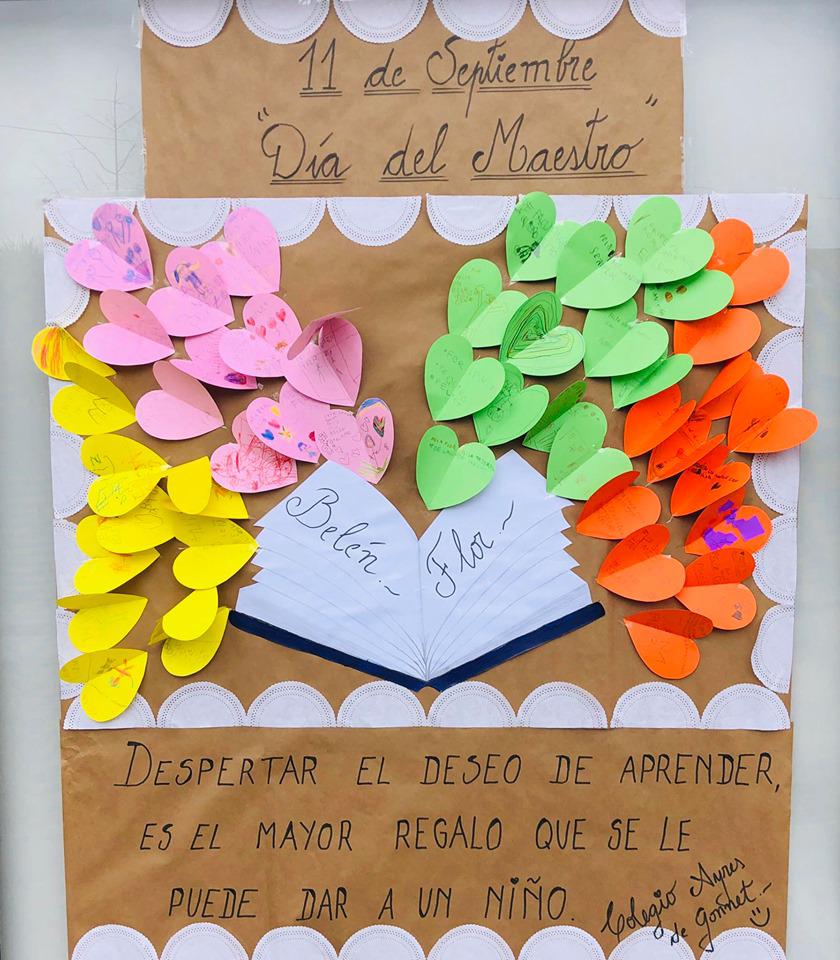 11 de Septiembre
"Día del Maestro"
Belén.~
Flor.~
DESPERTAR EL DESEO DE APRENDER,
ES EL MAYOR REGALO QUE SE LE
PUEDE DAR A UN NIÑO.
Colegio Ayres
de Gonnet.~